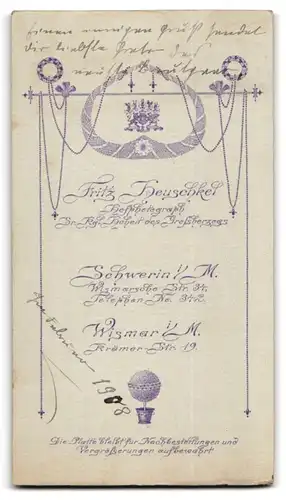 Einen innigen Gruß sendet
Fritz Heuschkel
Hofphotograph
Sr. Kgl. Hoheit des Großherzogs
Schwerin i/M.
Wismarsche Str. 34.
Telephon No. 342.
Wismar i/M.
Krämer-Str. 19
1908
Die Platte bleibt für Nachbestellungen und
Vergrößerungen aufbewahrt